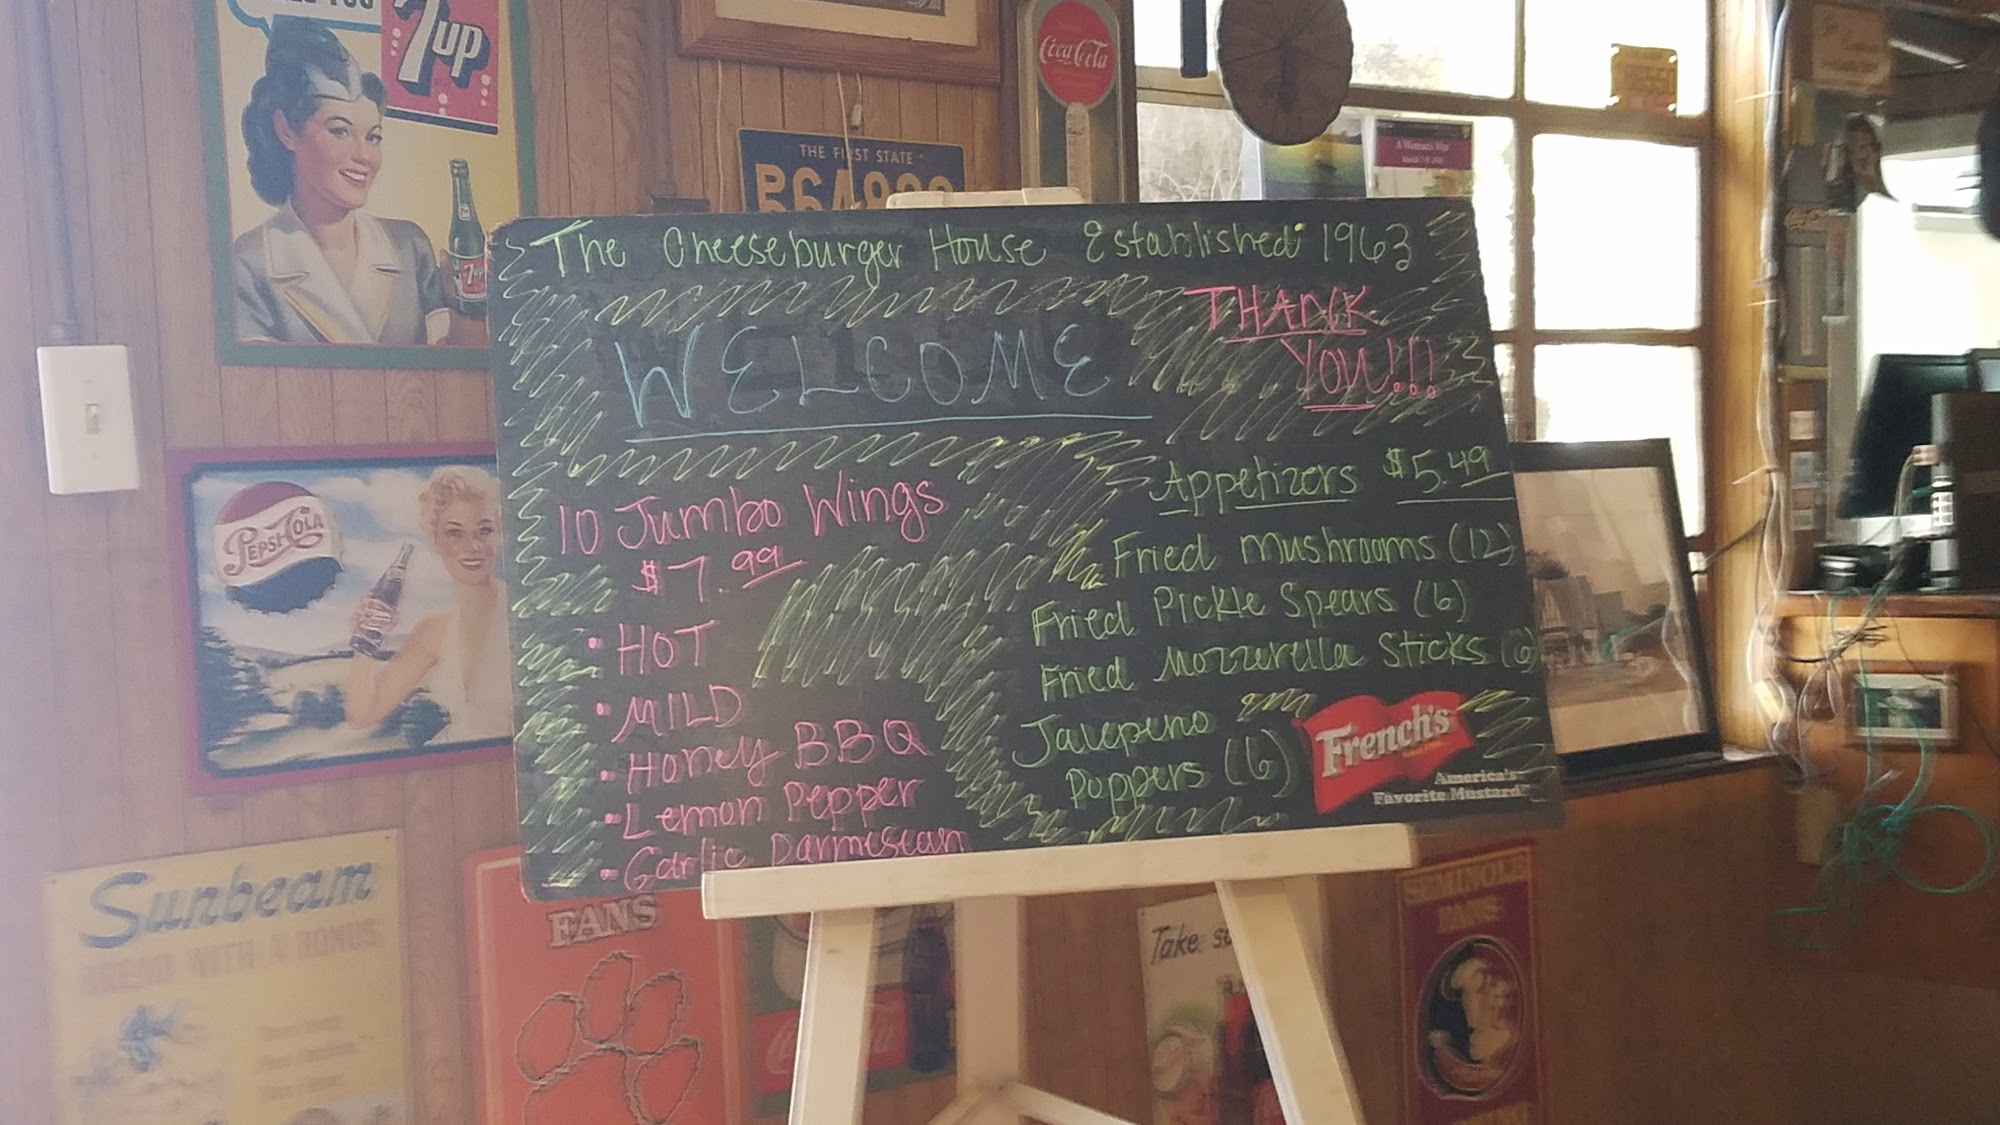 7up
Coca-Cola
THE FIRST STATE
A Woman's War
The Cheeseburger House Established 1963
THANK
YOU!!!
WELCOME
10 Jumbo Wings
$7.99
• HOT
• MILD
• Honey BBQ
• Lemon Pepper
• Garlic Parmescan
Appetizers $5.49
Fried Mushrooms (12)
Fried Pickle Spears (6)
Fried Mozzerella Sticks (6)
Jalepeno
Poppers (6)
French's
America's
Favorite Mustard
7up
PEPSI-COLA
Sunbeam
BREAD WITH A BONUS
FANS
Take
SEMINOLE
FANS